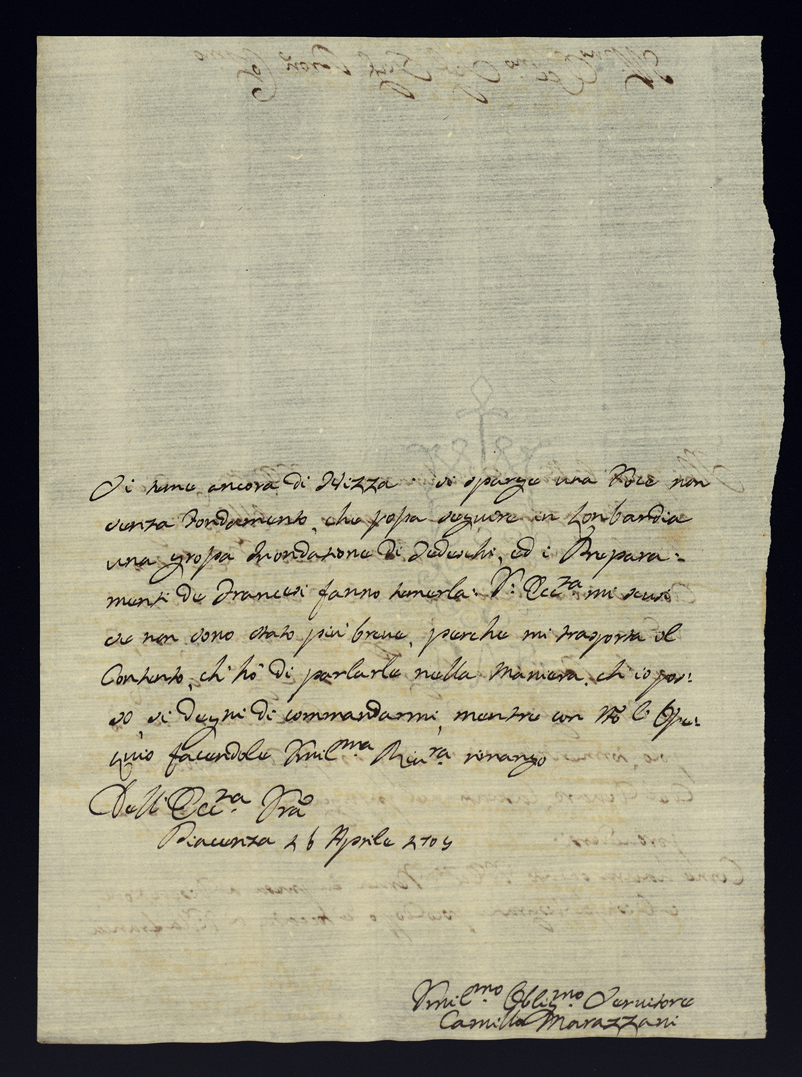 Si teme ancora di Nizza: si sparge una Voce non
senza fondamento, che possa seguire in Lombardia
una grossa Inondatione di Tedeschi, ed i Prepara:
menti de Francesi fanno temerla: V: Ecc.za mi scusi
se non sono stato più breve, perche mi trasporta il
Contento, ch' hò di parlarle nella maniera, ch' io pos:
so si degni di commandarmi, mentre con tto l' Osse:
quio facendole Umil.ma Reu.ra rimango
Dell' Ecc.za Vra
Piacenza 26 Aprile 1705
Umil.mo Oblig.mo Servitore
Camillo Marazzani